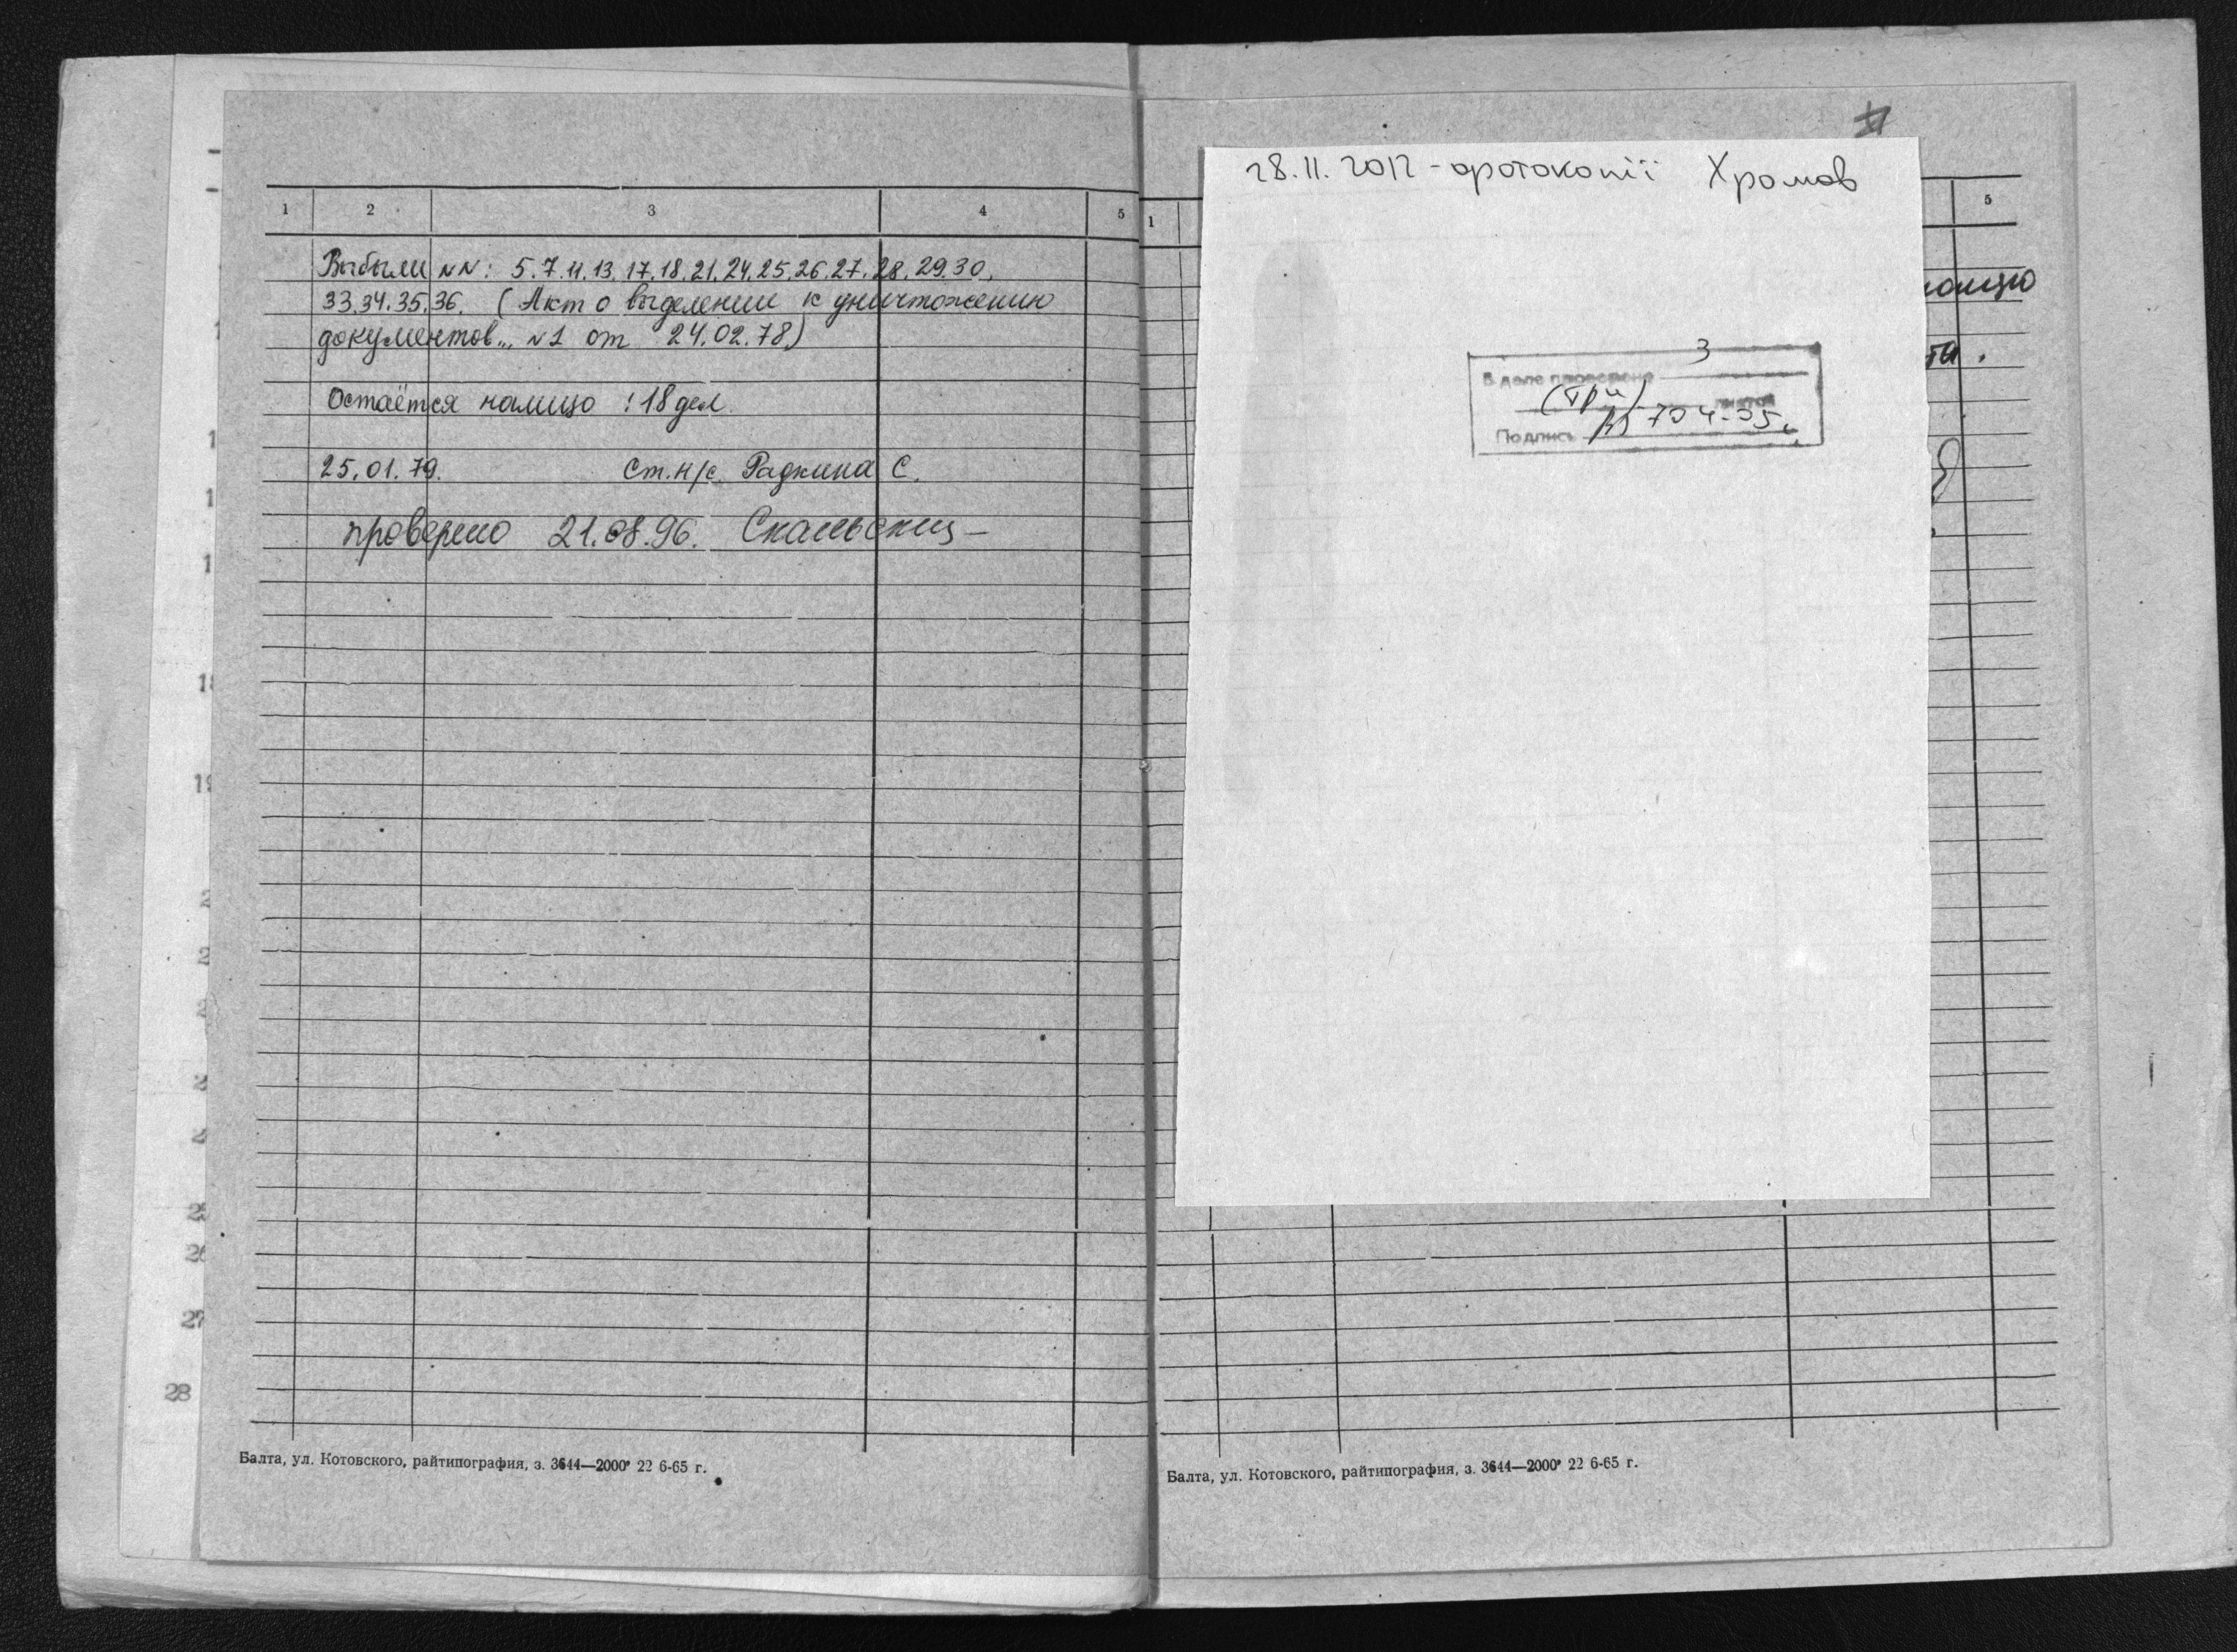 1 2 3 4 5
Выбыли NN: 5.7.11.13.17.18.21.24.25.26.27.28.29.30.
33.34.35.36. (Акт о выделении к уничтожению
документов... N1 от 24.02.78)
Остаётся налицо: 18 дел.
25.01.79. Ст.н/с. Радкина С.
проверено 21.08.96.
Балта, ул. Котовского, райтипография, з. 3644—2000 22 6-65 г.
28.11.2012 - фотокопії Хромов
1 5
В деле проверено 3
(три) листов
Подпись
Балта, ул. Котовского, райтипография, з. 3644—2000 22 6-65 г.
18
19
26
27
28